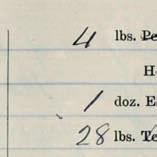 4 lbs. Pe
H
1 doz. E
28 lbs. Te